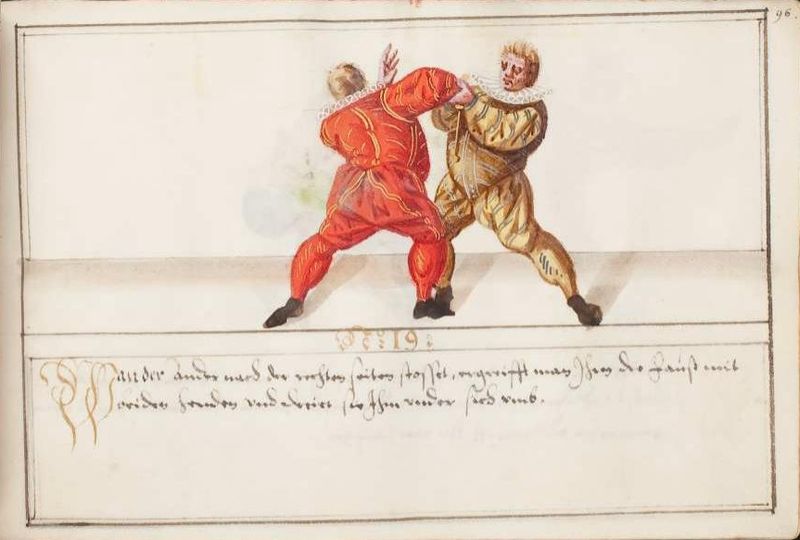 96.
No: 19:
Wan der Ander nach der rechten seiten stosset, ergreifft man Ihm die Faust mit
beiden henden vnd dreiet sie Ihm vnder sich vmb.